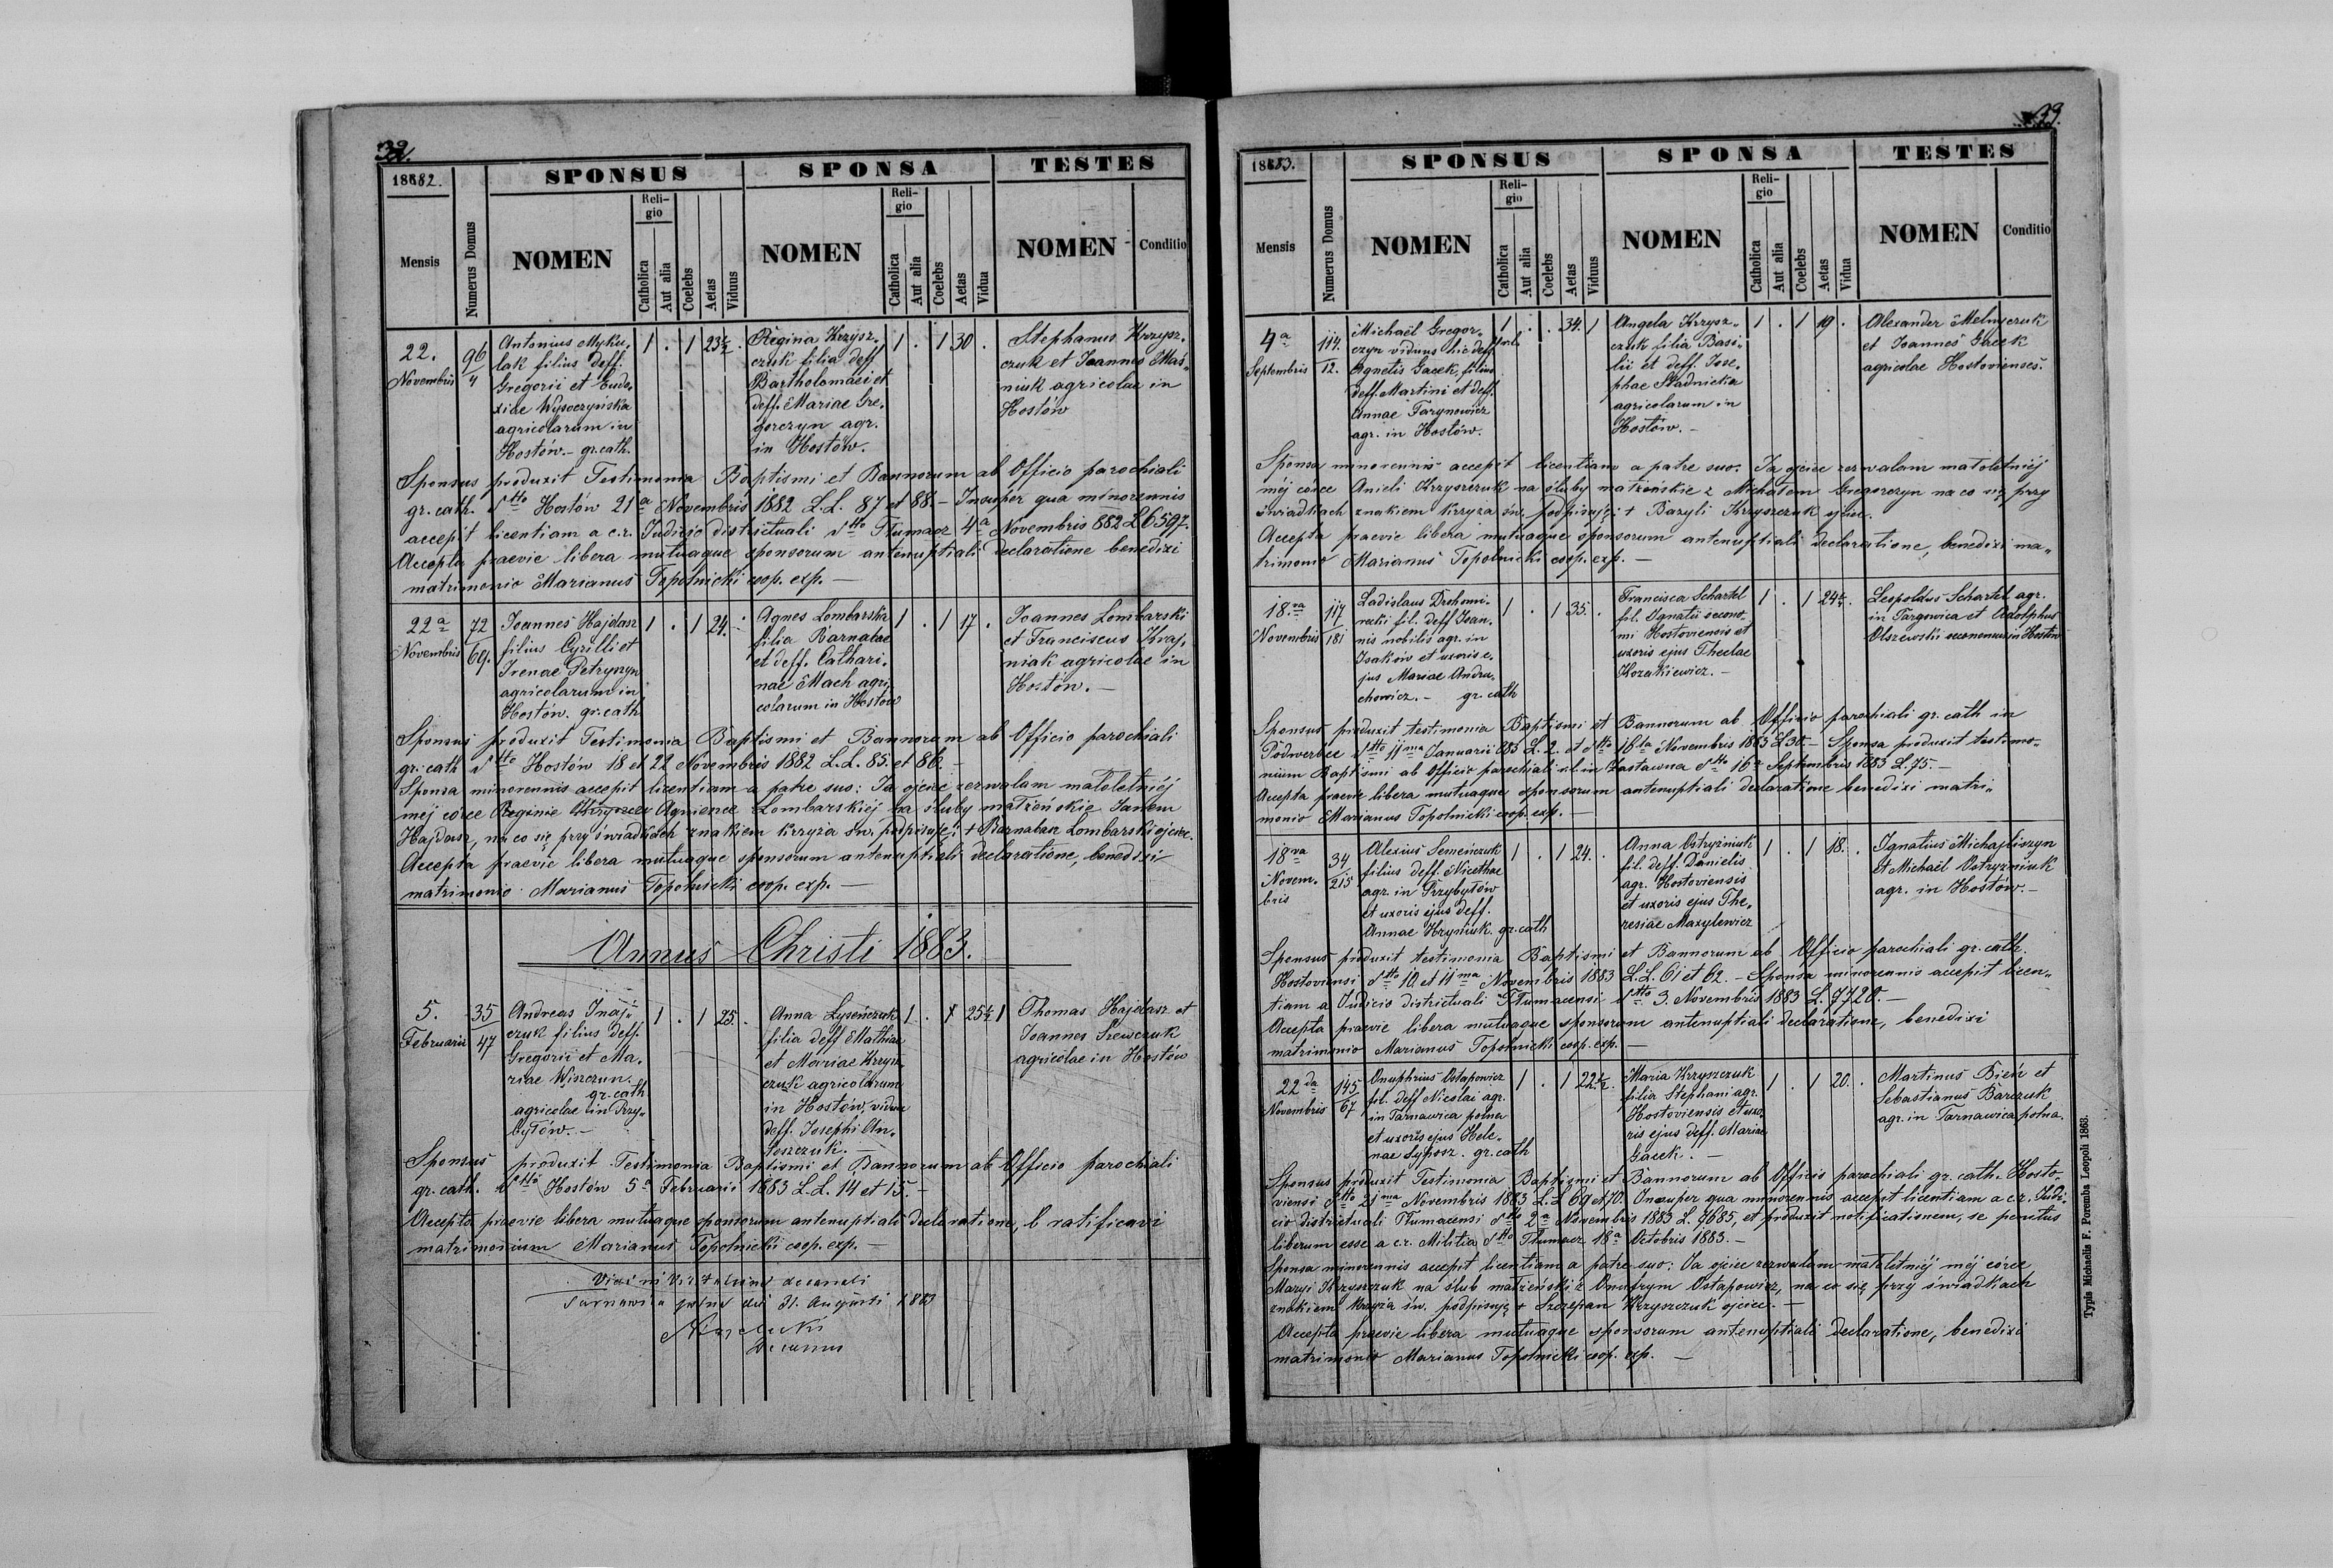 32.
1882.
SPONSUS
SPONSA
TESTES
Mensis
Numerus Domus
NOMEN
Religio
Catholica
Aut alia
Coelebs
Aetas
Viduus
NOMEN
Religio
Catholica
Aut alia
Coelebs
Aetas
Vidua
NOMEN
Conditio
22.
Novembris
96
4
Antonius Myku„
lak filius deff.
Gregorii et Eudo„
xiae Wysoczyńska
agricolarum in
Hostów.– gr. cath.
1 . 1 23½ .
Regina Krzysz„
czuk filia deff.
Bartholomaei et
deff. Mariae Gre„
gorczyn agr.
in Hostów.
1 . 1 30 .
Stephanus Krzysz„
czuk et Joannes Maś„
niuk agricolae in
Hostów
Sponsus produxit Testimonia Baptismi et Bannorum ab Officio parochiali
gr. cath. dtto Hostów 21a Novembris 1882 L.L. 87 et 88.– Insuper qua minorennis
accepit licentiam a c.r. Judicio districtuali dtto Tłumacz 4a Novembris 882 L 6597.
Accepta praevie libera mutuaque sponsorum antenuptiali declaratione benedixi
matrimonio Marianus Topolnicki coop. exp. —
22a
Novembris
72
69.
Joannes Hajdasz
filius Cyrilli et
Irenae Petryszyn
agricolarum in
Hostów. gr. cath
1 . 1 24.
Agnes Lombarska
filia Barnabae
et deff. Cathari„
nae Mach agri„
colarum in Hostów
1 . 1 17 .
Joannes Lombarski
et Franciscus Kraj„
niak agricolae in
Hostów. —
Sponsus produxit Testimonia Baptismi et Bannorum ab Officio parochiali
gr. cath dtto Hostów 18 et 22 Novembris 1882 L.L. 85. et 86. –
Sponsa minorennis accepit licentiam a patre suo: Ja ojciec zezwalam małoletniéj
méj córce Reginie Krzyszcz Agnience Lombarskiéj na śluby małżeńskie Janem
Hajdasz, na co się przy świadkach znakiem krzyża św. podpisuję: + Barnabasz Lombarski ojciec.
Accepta praevie libera mutuaque sponsorum antenuptiali declaratione, benedixi
matrimonio Marianus Topolnicki coop. exp. —
Annus Christi 1883.
5.
Februarii
35
47
Andreas
czuk filius deff.
Gregorii et Ma„
riae Wiszczun.
gr. cath
agricolae in Przy„
bytów. –
1 . 1 25. .
Anna Łyseńczuk
filia deff Mathiae
et Mariae Krzysz„
czuk agricolarum
in Hostów, vidua
deff. Josephi An„
toszczuk. —
1 . 1 25½ 1
Thomas Hajdasz et
Joannes Szewczuk
agricolae in Hostów
Sponsus produxit Testimonia Baptismi et Bannorum ab Officio parochiali
gr. cath. dtto Hostów 5a Februarii 1883 L.L. 14 et 15. –
Accepta praevie libera mutuaque sponsorum antenuptiali declaratione, b ratificavi
matrimonium Marianus Topolnicki coop. exp. —
Vidi in Visitatione decanali
Tarnawica polna die 31. Augusti 1883
Decanus
39.
1883.
SPONSUS
SPONSA
TESTES
Mensis
Numerus Domus
NOMEN
Religio
Catholica
Aut alia
Coelebs
Aetas
Viduus
NOMEN
Religio
Catholica
Aut alia
Coelebs
Aetas
Vidua
NOMEN
Conditio
4a
Septembris
114.
12.
Michaël Gregor„
czyn viduus hic deff
Agnetis Gacek, filius
deff. Martini et deff.
Annae Tarynowicz
agr. in Hostów.
1 . . 34. 1
Angela Krzysz„
czuk filia Basi„
lii et deff. Jose„
phae Stadnicka
agricolarum in
Hostów. –
1 . 1 19 .
Alexander Melnyczuk
et Joannes Gacek
agricolae Hostovienses.
Sponsa minorennis accepit licentiam a patre suo: Ja ojciec zezwalam małoletniéj
méj córce Anieli Krzyszczuk na śluby małżeńskie z Michałem Gregorczyn na co się przy
świadkach znakiem krzyża św. podpisuję: + Bazyli Krzyszczuk ojciec.
Accepta praevie libera mutuaque sponsorum antenuptiali declaratione, benedixi ma„
trimonio Marianus Topolnicki coop. exp. —
18.va
Novembris
117
181
Ladislaus Drohomi„
recki fil. deff Joan„
nis nobilis agr. in
Isaków et uxoris e„
jus Mariae Andru„
chowicz. – gr. cath
1 . 1 35. .
Francisca Schartel
fil. Ignatii oecono„
mi Hostoviensis et
uxoris ejus Theclae
Kozakiewicz. –
1 . 1 24½. .
Leopoldus Schartel agr.
in Targowica et Adolphus
Olszewski oeconomus in Hostów
Sponsus produxit testimonia Baptismi et Bannorum ab Officio parochiali gr. cath in
Podwerbce dtto 11ma Januarii 883 L. 2. et dtto 16ta Novembris 1883 L 30. – Sponsa produxit testimo„
nium Baptismi ab Officio parochiali r.l. in Zastawna dtto 16a Septembris 1883 L. 75. –
Accepta praevie libera mutuaque sponsorum antenuptiali declaratione benedixi matri„
monio Marianus Topolnicki coop. exp. —
18va
Novem„
bris
34
215
Alexius Semeńczuk
filius deff. Nicethae
agr. in Przybytów
et uxoris ejus deff.
Annae Hryniuk. gr. cath
1 . 1 24. .
Anna Ostryżniuk
fil. deff. Danielis
agr. Hostoviensis
et uxoris ejus The„
resiae Maxylewicz
1 . 1 18. .
Ignatius Michajliszyn
et Michaël Ostryżniuk
agr. in Hostów. –
Sponsus produxit testimonia Baptismi et Bannorum ab Officio parochiali gr. cath.
Hostoviensi dtto 10. et 11ma Novembris 1883 L.L. 61 et 62. – Sponsa minorennis accepit licen„
tiam a Judicio districtuali Tłumacensi dtto 3. Novembris 1883 L. 7720. –
Accepta praevie libera mutuaque sponsorum antenuptiali declaratione, benedixi
matrimonio Marianus Topolnicki coop. exp. —
22da
Novembris
145
67
Onuphrius Ostapowicz
fil. deff Nicolai agr.
in Tarnawica polna
et uxoris ejus Hele„
nae Syposz. gr. cath
1 . 1 22½. .
Maria Krzyszczuk
filia Stephani agr.
Hostoviensis et uxo„
ris ejus deff. Mariae
Gacek. –
1 . 1 20. .
Martinus Bień et
Sebastianus Barczuk
agr. in Tarnawica polna.
Sponsus produxit Testimonia Baptismi et Bannorum ab Officio parochiali gr. cath. Hosto„
viensi dtto 21ma Novembris 1883 L.L 69 et 70. Insuper qua minorennis accepit licentiam a c.r. Judi„
cio districtuali Tłumacensi dtto 2a Novembris 1883 L. 7685, et produxit notificationem, se penitus
liberum esse a c.r. Militia dtto Tłumacz 18a Octobris 1883. –
Sponsa minorennis accepit licentiam a patre suo: Ja ojciec zezwalam małoletniéj méj córce
Maryi Krzyszczuk na ślub małżeński z Onufrym Ostapowicz, na co się przy świadkach
znakiem krzyża św. podpisuję + Szczepan Krzyszczuk ojciec. —
Accepta praevie libera mutuaque sponsorum antenuptiali declaratione, benedixi
matrimonio Marianus Topolnicki coop. exp. —
Typis Michaelis F. Poremba Leopoli 1866.